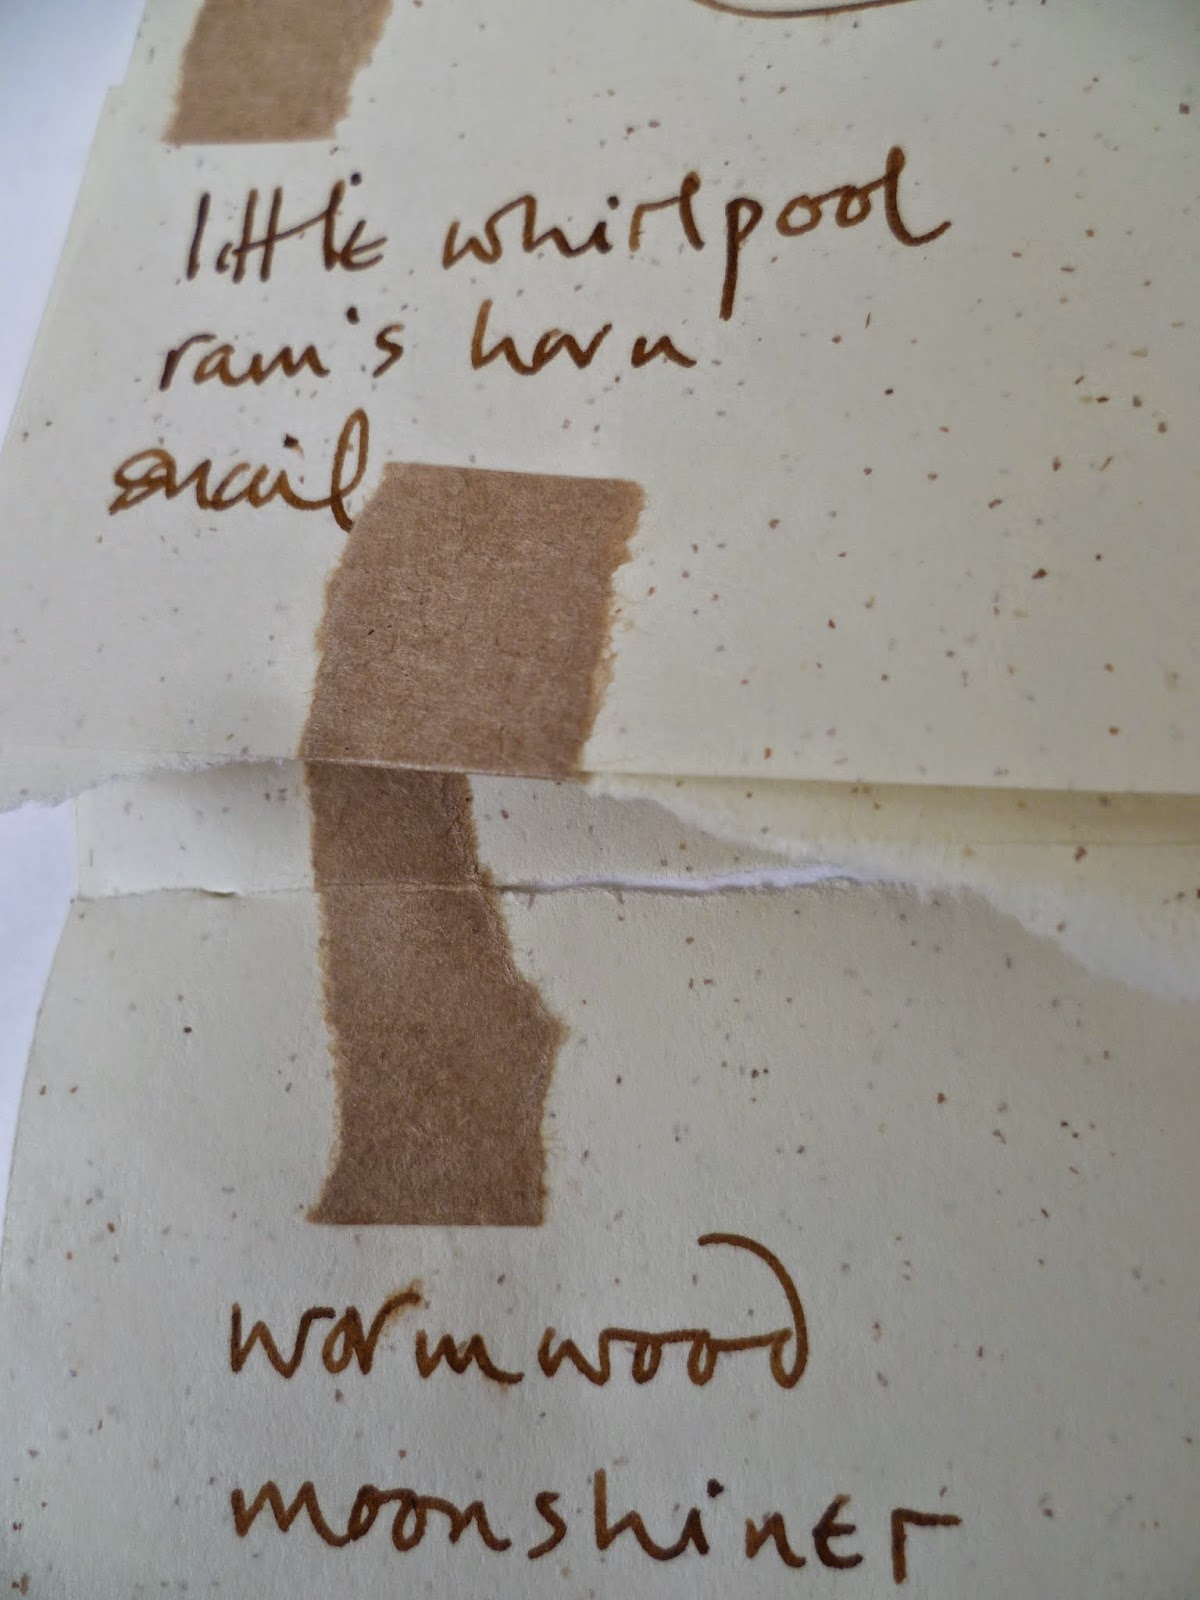 little whirlpool
ram's horn
snail
wormwood
moonshiner